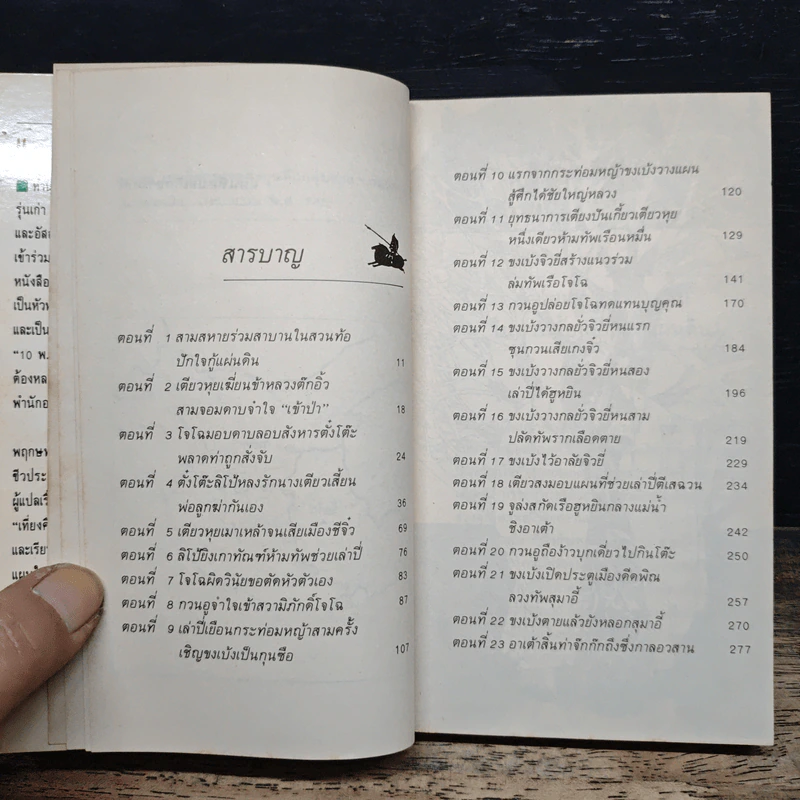 รุ่นเก่า
เข้าร่วม
หนังสือ
และเป็น
"10 พ.
ต้องหล
พฤกษ
ชีวประ
"เที่ยงคื
และเรีย
สารบาญ
ตอนที่ 1 สามสหายร่วมสาบานในสวนท้อ
ปักใจกู้แผ่นดิน 11
ตอนที่ 2 เตียวหุยเฆี่ยนข้าหลวงต๊กอิ้ว
สามจอมดาบจำใจ "เข้าป่า" 18
ตอนที่ 3 โจโฉมอบดาบลอบสังหารตั๋งโต๊ะ
พลาดท่าถูกสั่งจับ 24
ตอนที่ 4 ตั๋งโต๊ะลิโป้หลงรักนางเตียวเสี้ยน
พ่อลูกฆ่ากันเอง 36
ตอนที่ 5 เตียวหุยเมาเหล้าจนเสียเมืองชีจิ๋ว 69
ตอนที่ 6 ลิโป้ยิงเกาทัณฑ์ห้ามทัพช่วยเล่าปี่ 76
ตอนที่ 7 โจโฉผิดวินัยขอตัดหัวตัวเอง 83
ตอนที่ 8 กวนอูจำใจเข้าสวามิภักดิ์โจโฉ 87
ตอนที่ 9 เล่าปี่เยือนกระท่อมหญ้าสามครั้ง
เชิญขงเบ้งเป็นกุนซือ 107
ตอนที่ 10 แรกจากกระท่อมหญ้าขงเบ้งวางแผน
สู้ศึกได้ชัยใหญ่หลวง 120
ตอนที่ 11 ยุทธนาการเตียงปันเกี้ยวเตียวหุย
หนึ่งเดียวห้ามทัพเรือนหมื่น 129
ตอนที่ 12 ขงเบ้งจิวยี่สร้างแนวร่วม
ล่มทัพเรือโจโฉ 141
ตอนที่ 13 กวนอูปล่อยโจโฉทดแทนบุญคุณ 170
ตอนที่ 14 ขงเบ้งวางกลยั่วจิวยี่หนแรก
ซุนกวนเสียเกงจิ๋ว 184
ตอนที่ 15 ขงเบ้งวางกลยั่วจิวยี่หนสอง
เล่าปี่ได้ฮูหยิน 196
ตอนที่ 16 ขงเบ้งวางกลยั่วจิวยี่หนสาม
ปลัดทัพรากเลือดตาย 219
ตอนที่ 17 ขงเบ้งไว้อาลัยจิวยี่ 229
ตอนที่ 18 เตียวสงมอบแผนที่ช่วยเล่าปี่ตีเสฉวน 234
ตอนที่ 19 จูล่งสกัดเรือฮูหยินกลางแม่น้ำ
ชิงอาเต้า 242
ตอนที่ 20 กวนอูถือง้าวบุกเดี่ยวไปกินโต๊ะ 250
ตอนที่ 21 ขงเบ้งเปิดประตูเมืองดีดพิณ
ลวงทัพสุมาอี้ 257
ตอนที่ 22 ขงเบ้งตายแล้วยังหลอกสุมาอี้ 270
ตอนที่ 23 อาเต้าสิ้นท่าจ๊กก๊กถึงซึ่งกาลอวสาน 277